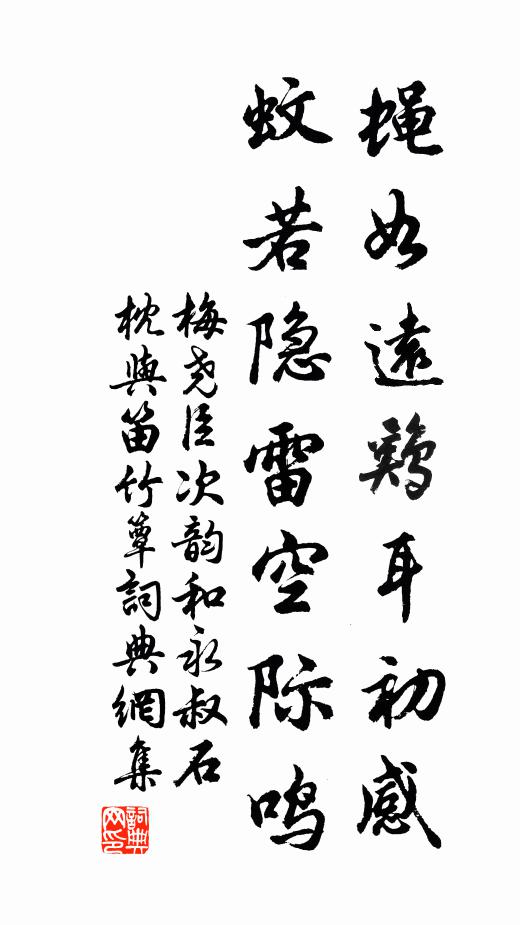 蝇如遠鷄耳初感
蚊若隐雷空际鸣
梅尧臣次韵和永叔石
枕與笛竹簟詞典網集
詞典网印